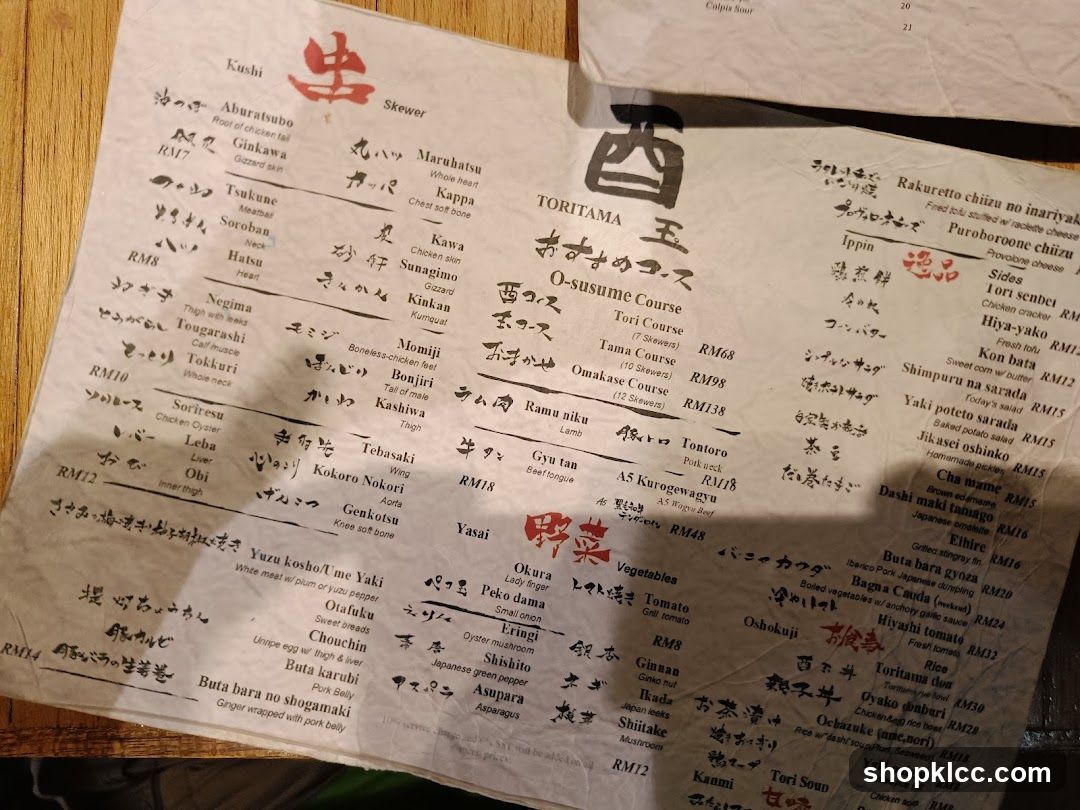 Colpis Sour
20
21
Kushi
串
Skewer
Aburatsubo
Root of chicken tail
Ginkawa
Gizzard skin
RM7
丸ハツ Maruhatsu
Whole heart
カッパ Kappa
Chest soft bone
Tsukune
Meatball
Soroban
Neck
ハツ Hatsu
Heart
RM8
皮 Kawa
Chicken skin
砂肝 Sunagimo
Gizzard
きんかん Kinkan
Kumquat
ねぎま Negima
Thigh with leeks
とうがらし Tougarashi
Calf muscle
とっくり Tokkuri
Whole neck
RM10
モミジ Momiji
Boneless-chicken feet
ぼんじり Bonjiri
Tail of male
かしわ Kashiwa
Thigh
ソリレース Soriresu
Chicken Oyster
レバー Leba
Liver
おび Obi
Inner thigh
RM12
手羽先 Tebasaki
Wing
心のこり Kokoro Nokori
Aorta
げんこつ Genkotsu
Knee soft bone
Yuzu kosho/Ume Yaki
White meat w/ plum or yuzu pepper
Otafuku
Sweet breads
Chouchin
Unripe egg w/ thigh & liver
豚カルビ Buta karubi
Pork Belly
豚バラの生姜巻 Buta bara no shogamaki
Ginger wrapped with pork belly
RM14
酉
TORITAMA
玉
おすすめコース
O-susume Course
酉コース Tori Course
(7 Skewers)
RM68
玉コース Tama Course
(10 Skewers)
RM98
おまかせ Omakase Course
(12 Skewers)
RM138
ラム肉 Ramu niku
Lamb
豚トロ Tontoro
Pork neck
牛タン Gyu tan
Beef tongue
RM18
RM18
A5 Kurogewagyu
A5 Wagyu Beef
RM48
Yasai
野菜
Vegetables
Okura
Lady finger
ペコ玉 Peko dama
Small onion
トマト焼き Tomato
Grill tomato
RM8
エリンギ Eringi
Oyster mushroom
Shishito
Japanese green pepper
アスパラ Asupara
Asparagus
銀杏 Ginnan
Ginko nut
ネギ Ikada
Japan leeks
椎茸 Shiitake
Mushroom
RM12
10% service charge and 6% SST will be added on all
menu prices.
Rakuretto chiizu no inariyak
Fried tofu stuffed w/ raclette cheese
Puroboroone chiizu
Provolone cheese
Ippin
逸品
Sides
鶏煎餅 Tori senbei
Chicken cracker
Hiya-yako
Fresh tofu
コーンバター Kon bata
Sweet corn w/ butter
RM12
Shimpuru na sarada
Today's salad
RM15
Yaki poteto sarada
Baked potato salad
RM15
Jikasei oshinko
Homemade pickles
RM15
茶豆 Cha mame
Brown edamame
RM15
だし巻たまご Dashi maki tamago
Japanese omelette
RM16
Eihire
Grilled stingray fin
RM16
Buta bara gyoza
Iberico Pork Japanese dumpling
RM20
バーニャカウダ Bagna Cauda
Boiled vegetables w/ anchovy garlic sauce
RM24
冷やしトマト Hiyashi tomato
Fresh tomato
RM32
Oshokuji
お食事
Rice
酉玉丼 Toritama don
Toritama rice bowl
RM30
親子丼 Oyako donburi
Chicken&egg rice bowl
RM28
お茶漬け Ochazuke (ume,nori)
焼きおにぎり
鶏スープ Tori Soup
Kanmi
甘味
shopklcc.com